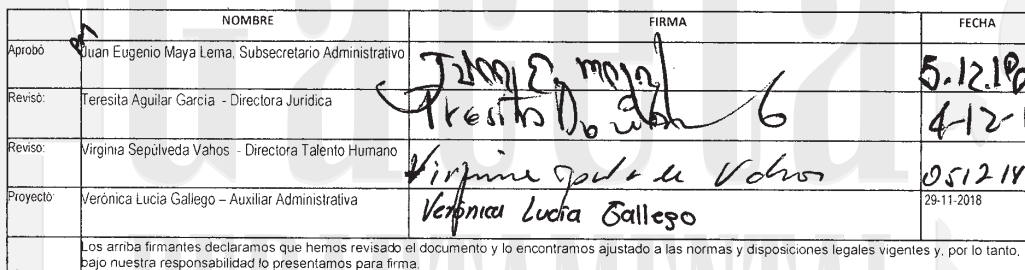 NOMBRE FIRMA FECHA
Aprobó Juan Eugenio Maya Lema, Subsecretario Administrativo Juan E. Maya 5.12.18
Revisó: Teresita Aguilar Garcia - Directora Jurídica Teresita 4-12-1
Reviso: Virginia Sepúlveda Vahos - Directora Talento Humano Virginia Vahos 0512 18
Proyectó: Verónica Lucia Gallego – Auxiliar Administrativa Verónica Lucía Gallego 29-11-2018
Los arriba firmantes declaramos que hemos revisado el documento y lo encontramos ajustado a las normas y disposiciones legales vigentes y, por lo tanto,
bajo nuestra responsabilidad lo presentamos para firma.